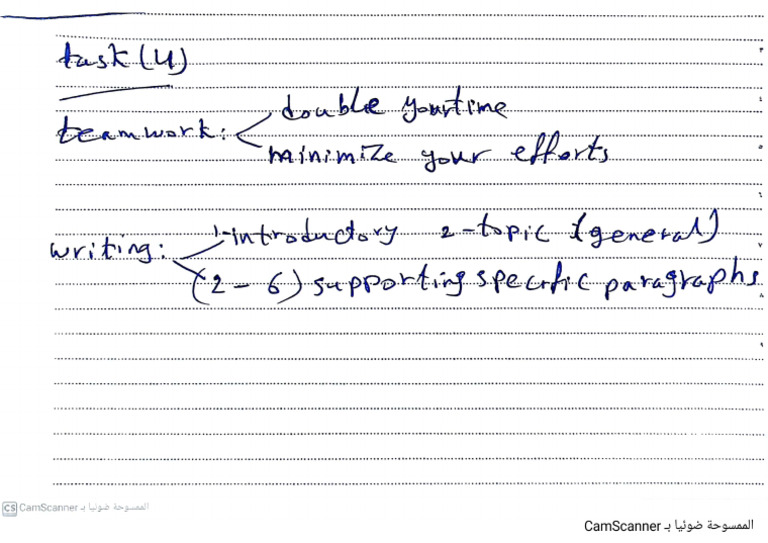 task (4)
teamwork: double your time
minimize your efforts
writing: 1-introductory 2-topic (general)
(2-6) supporting specific paragraphs
CS CamScanner الممسوحة ضوئيا بـ
الممسوحة ضوئيا بـ CamScanner